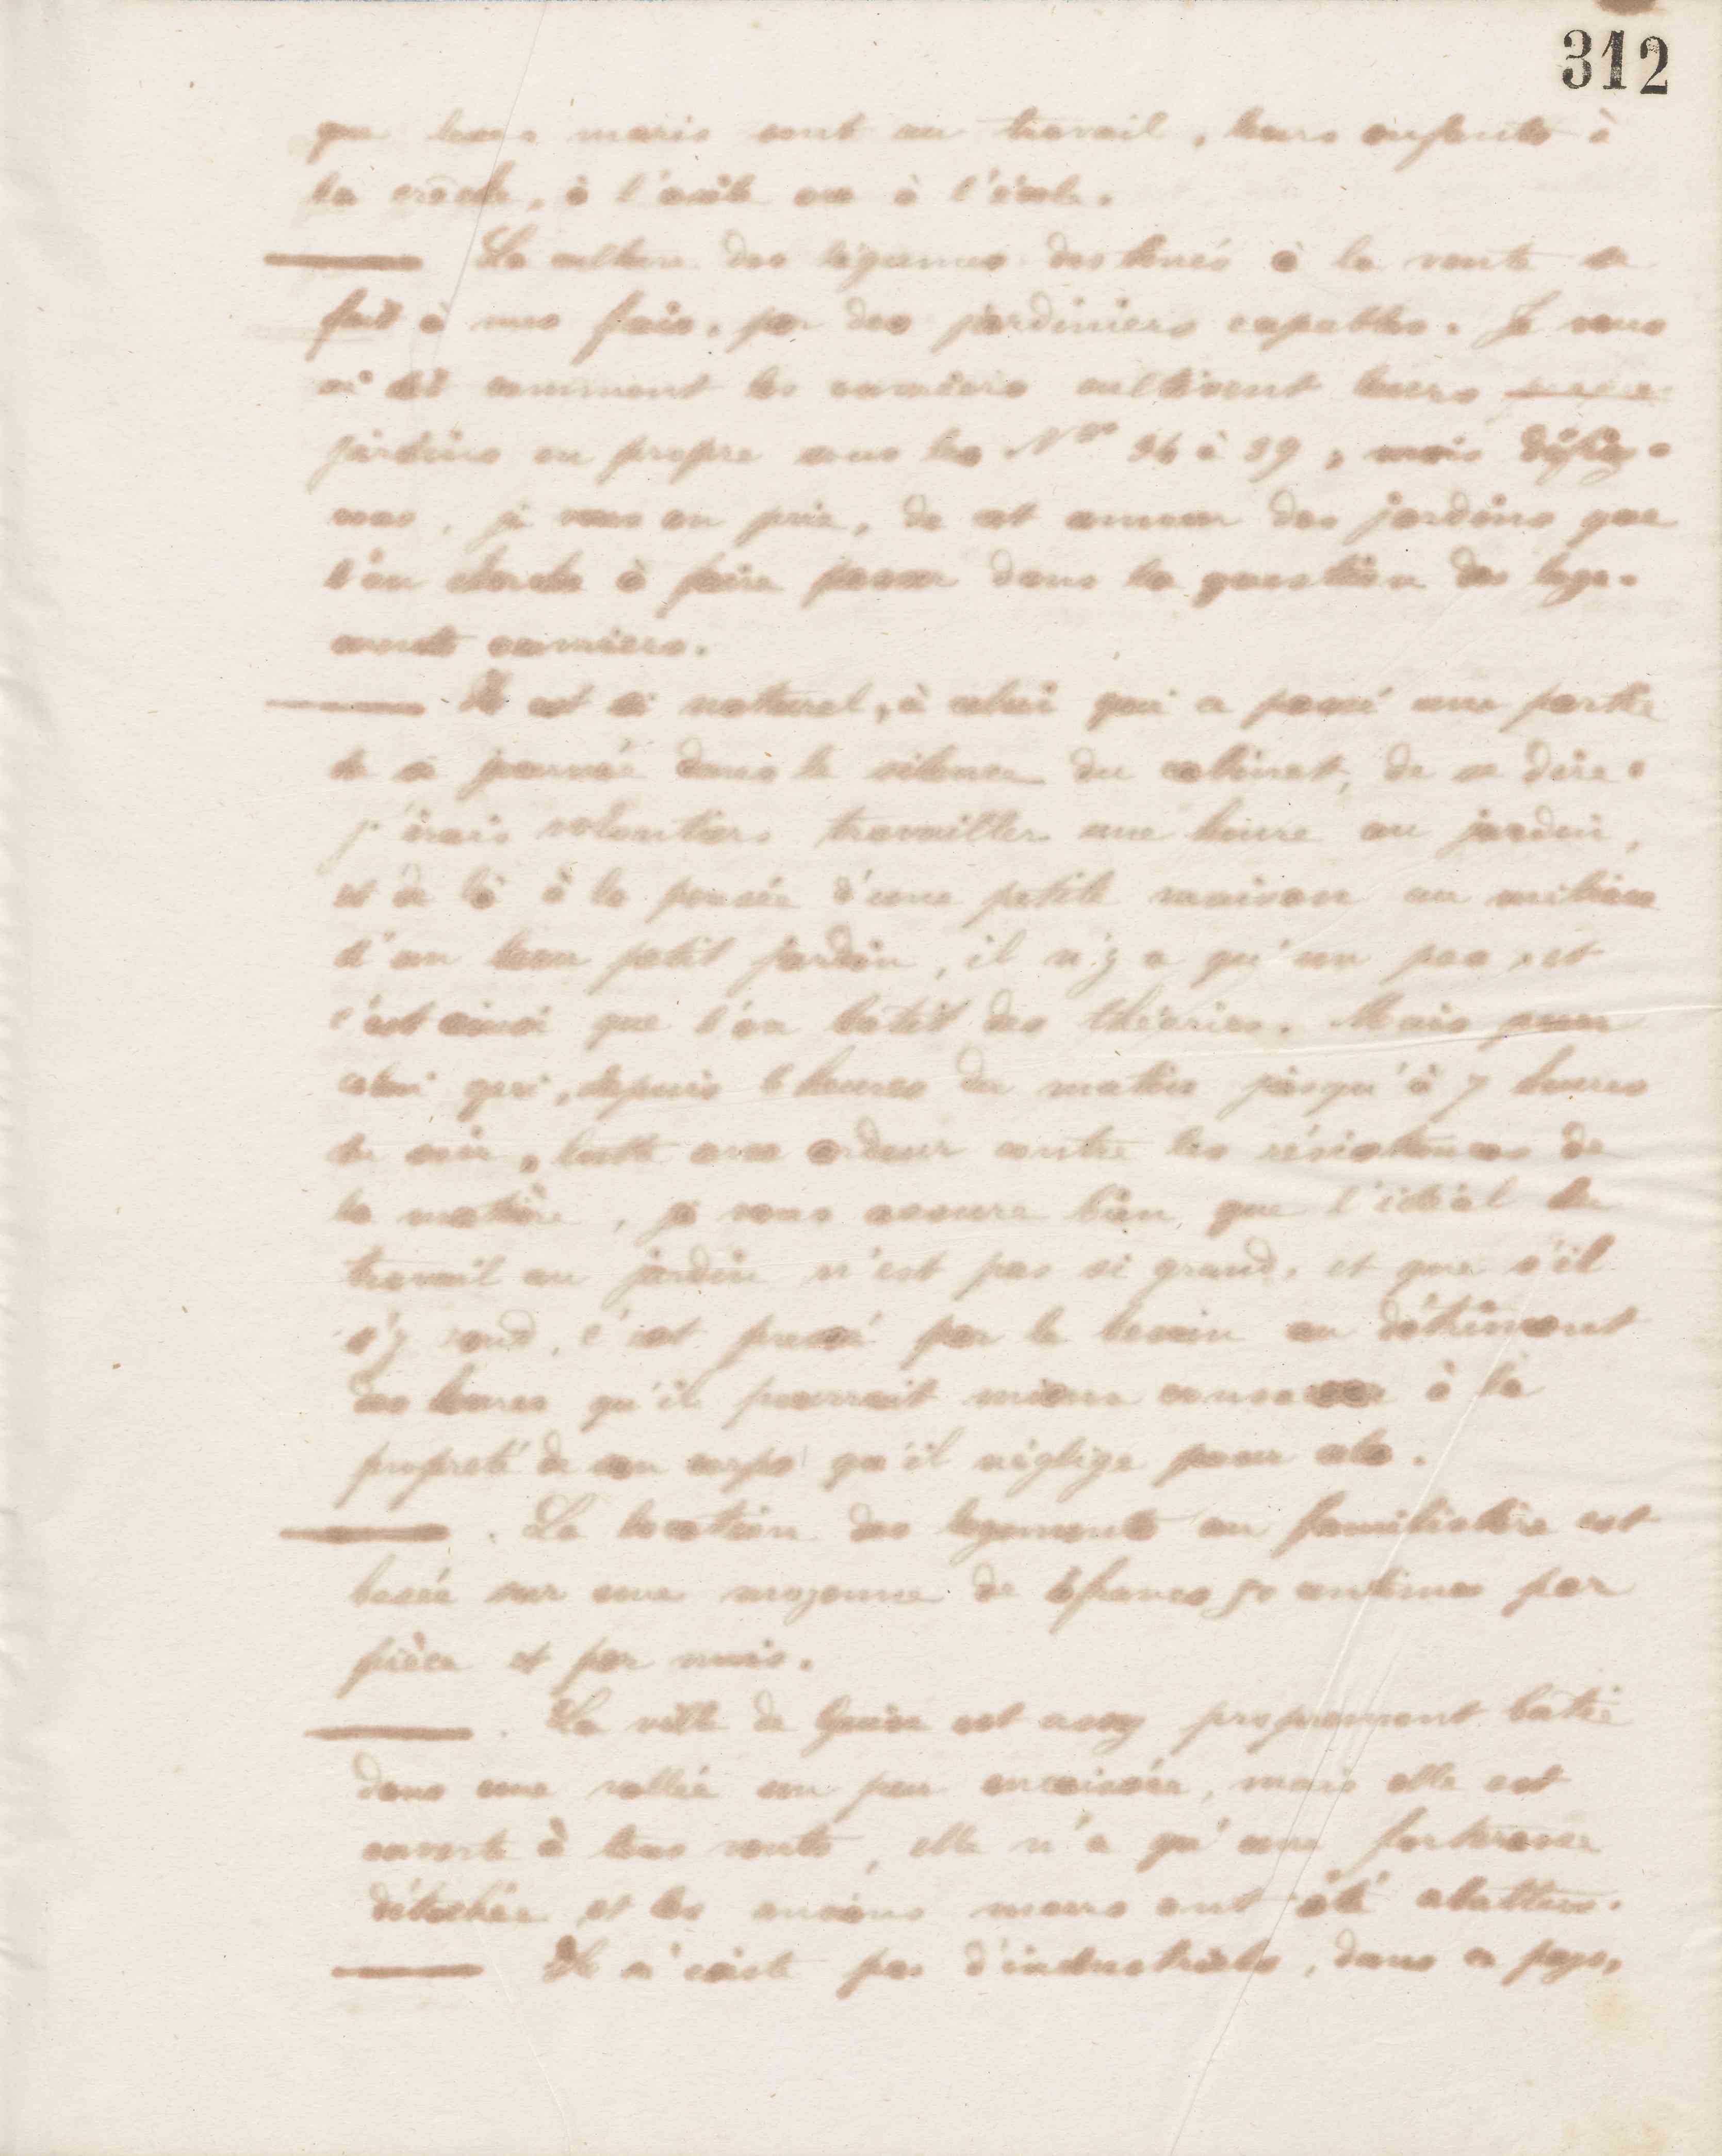 312
que leurs maris sont au travail, leurs enfants à
la crèche, à l'asile ou à l'école.
La culture des légumes destinés à la vente se
fait à mes frais, par des jardiniers capables. Je vous
ai dit comment les ouvriers cultivent leurs
jardins en propre sous les Nos 36 à 39, mais défiez-
vous, je vous en prie, de cet amour des jardins que
l'on cherche à faire passer dans la question des loge-
ments ouvriers.
Il est si naturel, à celui qui a passé une partie
de sa journée dans le silence du cabinet, de se dire:
j'irais volontiers travailler une heure au jardin,
et de là à la pensée d'une petite maison au milieu
d'un beau petit jardin, il n'y a qu'un pas, et
c'est ainsi que l'on batit des théories. Mais pour
celui qui, depuis 6 heures du matin jusqu'à 7 heures
du soir, lutte avec ardeur contre les résistances de
la matière, je vous assure bien, que l'idéal du
travail au jardin n'est pas si grand, et que s'il
s'y rend, c'est pressé par le besoin au détriment
des heures qu'il pourrait mieux consacrer à la
propreté de son corps qu'il néglige pour cela.
La location des logements au familistère est
basée sur une moyenne de 4 francs 50 centimes par
pièce et par mois.
La ville de Guise est assez proprement batie
dans une vallée un peu encaissée, mais elle est
ouverte à tous vents, elle n'a qu'une forteresse
détachée et les anciens murs ont été abattus.
Il n'existe pas d'industriels, dans ce pays,